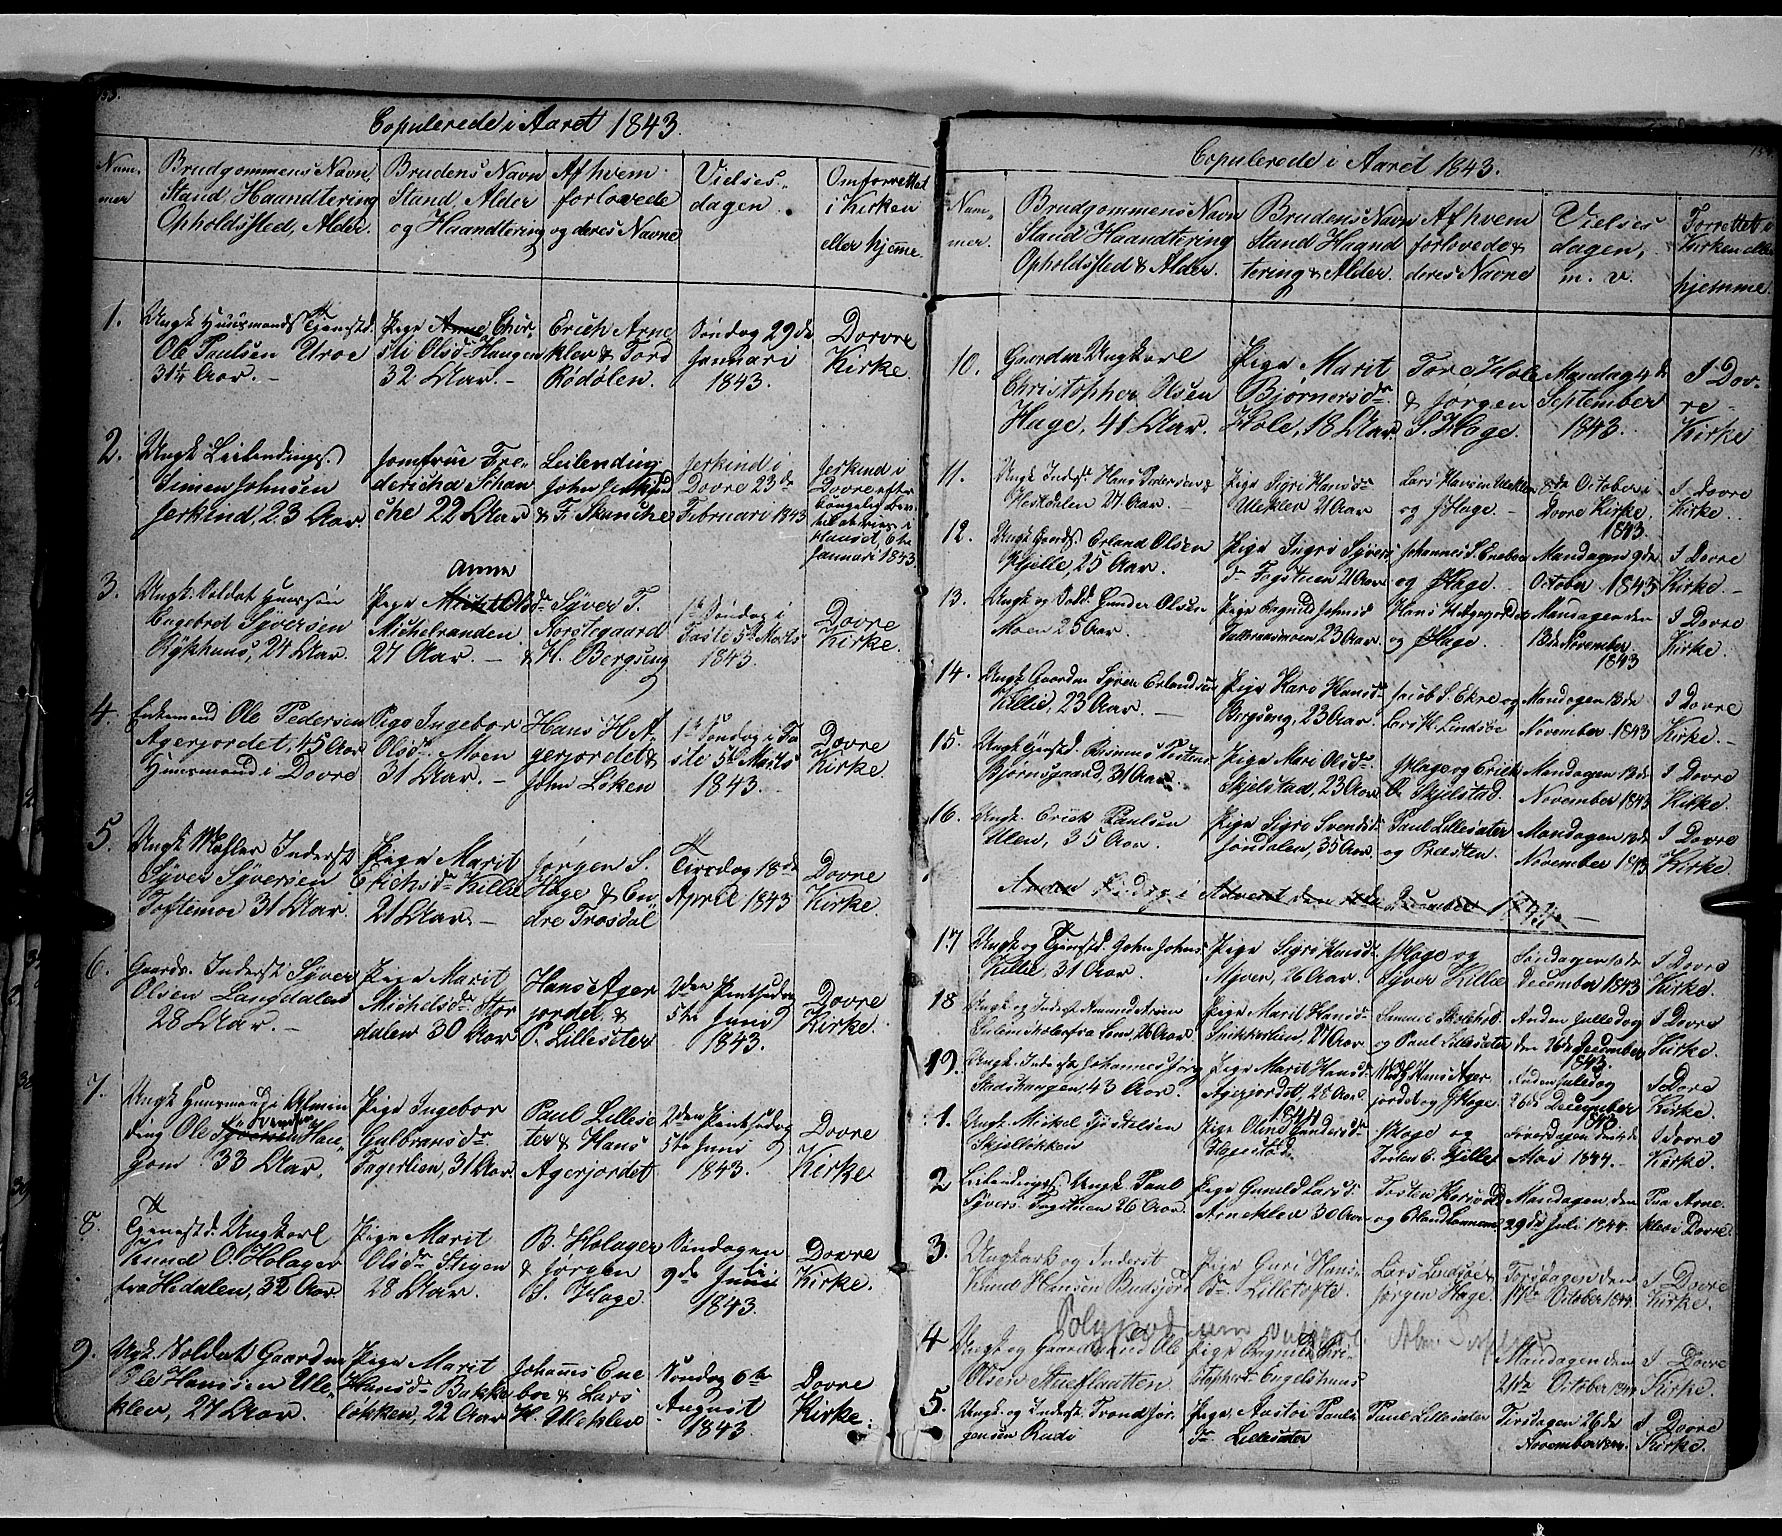 153.
Copulerede i Aaret 1843.
Num-
mer
Brudgommens Navn,
Stand, Haandtering
Opholdssted, Alder.
Brudens Navn
Stand, Alder
og Haandtering
Af hvem
forlovede
og deres Navne
Vielses-
dagen.
Om forrettet
i Kirken
eller hjemme.
1.
Ungk Huusmands Tjenestd.
Ole Paulsen Uroe
31¼ Aar.
Pige Anne Chir-
sti Olsdr Haugen
32 Aar.
Erich Arne
klev & Tord
Rödölen.
Söndag 29de
Januari
1843.
Dovre
Kirke.
2.
Ungk Leilendings.
Simen Johnsen
Jerkind, 23 Aar.
Jomfrue Fre-
dericha Schan
che 22 Aar
Leilending
John Jerkind
& F. Skanche
Jerkind i
Dovre 23de
Februari 1843
Jerkind i
Dovre efter
Januari 1843.
3.
Ungk. Soldat Huussön
Engebret Syversen
Rykhuus, 24 Aar.
Anne
Pige
Michelranden
27 Aar.
Syver T.
Torstegaard
& H. Bergseng
1ste Söndag i
Faste 5te Marts
1843.
Dovre
Kirke.
4.
Enkemand Ole Pedersen
Agerjordet, 45 Aar
Huusmand i Dovre
Pige Ingebor
Olsdr Moen
31 Aar.
Hans H. A-
gerjordet &
John Löken
1ste Söndag i Fa
ste 5te Marts
1843.
Dovre
Kirke.
5.
Ungk Mahler Inderst
Syver Syversen
Toftemoe 31 Aar.
Pige Marit
Erichsdr Killie
21 Aar.
Jörgen S.
Hage & En-
dre Trosdal
Tirsdag 18de
April 1843
Dovre
Kirke.
6.
Gaards. Inderst Syver
Olsen Langdalen
28 Aar.
Pige Marit
Michelsdr Stor
dalen 30 Aar
Hans Ager
jordet &
P. Lillesæter
2den Pintsedag
5te Juni
1843.
Dovre
Kirke.
7.
Ungk Huusmand i Almin
ding Ole
33 Aar.
Pige Ingebor
Gulbransdr
Fagerlien, 31 Aar.
Paul Lillesæ
ter & Hans
Agerjordet
2den Pintsedag
5te Juni
1843.
Dovre
Kirke.
8.
Tjenestd. Ungkarl
Knud O. Holager
fra Hedalen, 32 Aar.
Pige Marit
Olsdr Stigen
28 Aar.
B. Holager
& Jörgen
S. Hage.
Söndagen
9de Juli
1843.
Dovre
Kirke.
9.
Ungk. Soldat Gaardm
Ole Hansen Ule-
klev, 27 Aar.
Pige Marit
Hansdr Bakke
lökken, 22 Aar
Johannes Ene
boe & Lars
H. Uleklev
Söndag 6te
August
1843.
Dovre
Kirke.
Copulerede i Aaret 1843.
Num-
mer.
Brudgommens Navn
Stand Haandtering
Opholdssted & Alder.
Brudens Navn
Stand Haand
tering & Alder.
Af hvem
forlovede &
deres Navne
Vielses
dagen,
m. v.
Forrettet i
Kirken eller
hjemme.
10.
Gaardm Ungkarl
Christopher Olsen
Hage, 41 Aar.
Pige Marit
Bjørnersdr
Hole, 18 Aar.
Tor Hole
& Jörgen
S. Hage.
Mandag 4de
September
1843.
I Dov-
re
Kirke
11.
Ungk Inderst Hans Pedersen
Hestdalen 27 Aar.
Pige Sigri Hansdr
Uleklev 21 Aar
Lars Hansen Uleklev
og J Hage.
October i
Dovre Kirke.
1843
I Dovre
Kirke.
12.
Ungk Gaards Erland Olsen
Kjelle, 25 Aar.
Pige Ingri Syvers
dr Fogstuen 21 Aar
Johannes S. Eneboe
og J Hage.
Mandagen 9de
October 1843
I Dovre
Kirke.
13.
Ungk og Sold. Gunder Olsen
Moen 25 Aar.
Pige Ragnild Johnsd
23 Aar.
og J Hage.
Mandagen den
13de November
1843
I Dovre
Kirke.
14.
Ungk Gaardm Syver Erlandsen
Killie, 23 Aar.
Pige Kari Hansd
Bergseng, 23 Aar.
Jacob S. Ekre og
Lars H. Lindsöe
Mandagen 13de
November 1843
I Dovre
Kirke.
15.
Ungk Tjenstd. Rasmus Torstens
Bjørnsgaard, 31 Aar.
Pige Mari Olsdr
Skjelstad, 23 Aar.
J Hage og Erick
O. Skjelstad.
Mandagen 13de
November 1843
I Dovre
Kirke.
16.
Ungk. Erick Paulsen
Ulen, 35 Aar.
Pige Sigri Svendsd
Jondalen, 35 Aar.
Paul Lillesæter
og Præsten.
Mandagen 13de
November 1843
I Dovre
Kirke.
Anden Søndag i Advent den 10de December
17
Ungk og Tjenestd. John Johns
Killie, 31 Aar.
Pige Sigri Knudsd
26 Aar.
J Hage og
Syver Killie
Søndagen 10de
December 1843
I Dovre
Kirke.
18
Ungk og Inderst Amund Iversen
fra Lom, 26 Aar.
Pige Marit Hansd
Snikkerlien, 27 Aar
og Paul Lillesæter
Anden Julledag
den 26de December
1843.
I Dovre
Kirke.
19.
Ungk. Inderste Johannes Jörg
43 Aar.
Pige Marit Hansd
Agerjordet, 28 Aar.
Hans Ager
jordet og J Hage
Anden Juledag
26de December
1843
I Dovre
Kirke.
1844
1.
Ungk. Mickel Tjöstelsen
Skjellokken
Pige Olind Gundersdr
J Hage og
Torsten E. Kjelle
Løverdagen den 4de
Mai 1844.
I Dovre
Kirke.
2
Leilendings Ungk Paul
Syvers. Fogstuen 26 Aar.
Pige Gunild Larsd
Arneklev 30 Aar
og Erland
Mandagen den
29de Juli 1844.
Paa Arne
klev i Dovre.
3.
Ungkark og Inderst
Knud Hansen Budsjord
Pige Guri Hans
dr Lilletofte.
Lars Lindsöe &
Jörgen Hage.
Torsdagen den
17de October 1844.
I Dovre
Kirke.
Polypodium vulgare.
4
Ungk og Gaardmand Ole
Olsen
Pige Ragnild Chri-
stophersd Engelshuus
Mandagen den
21de October 1844
I Dovre
Kirke.
5.
Ungk. og Inderst. Trond Jör-
gensen Rudi
Pige Aastøe Pauls
dr Lillesæter
Paul Lillesæter
Tirsdagen 26de
November 1844.
I Dovre
Kirke.